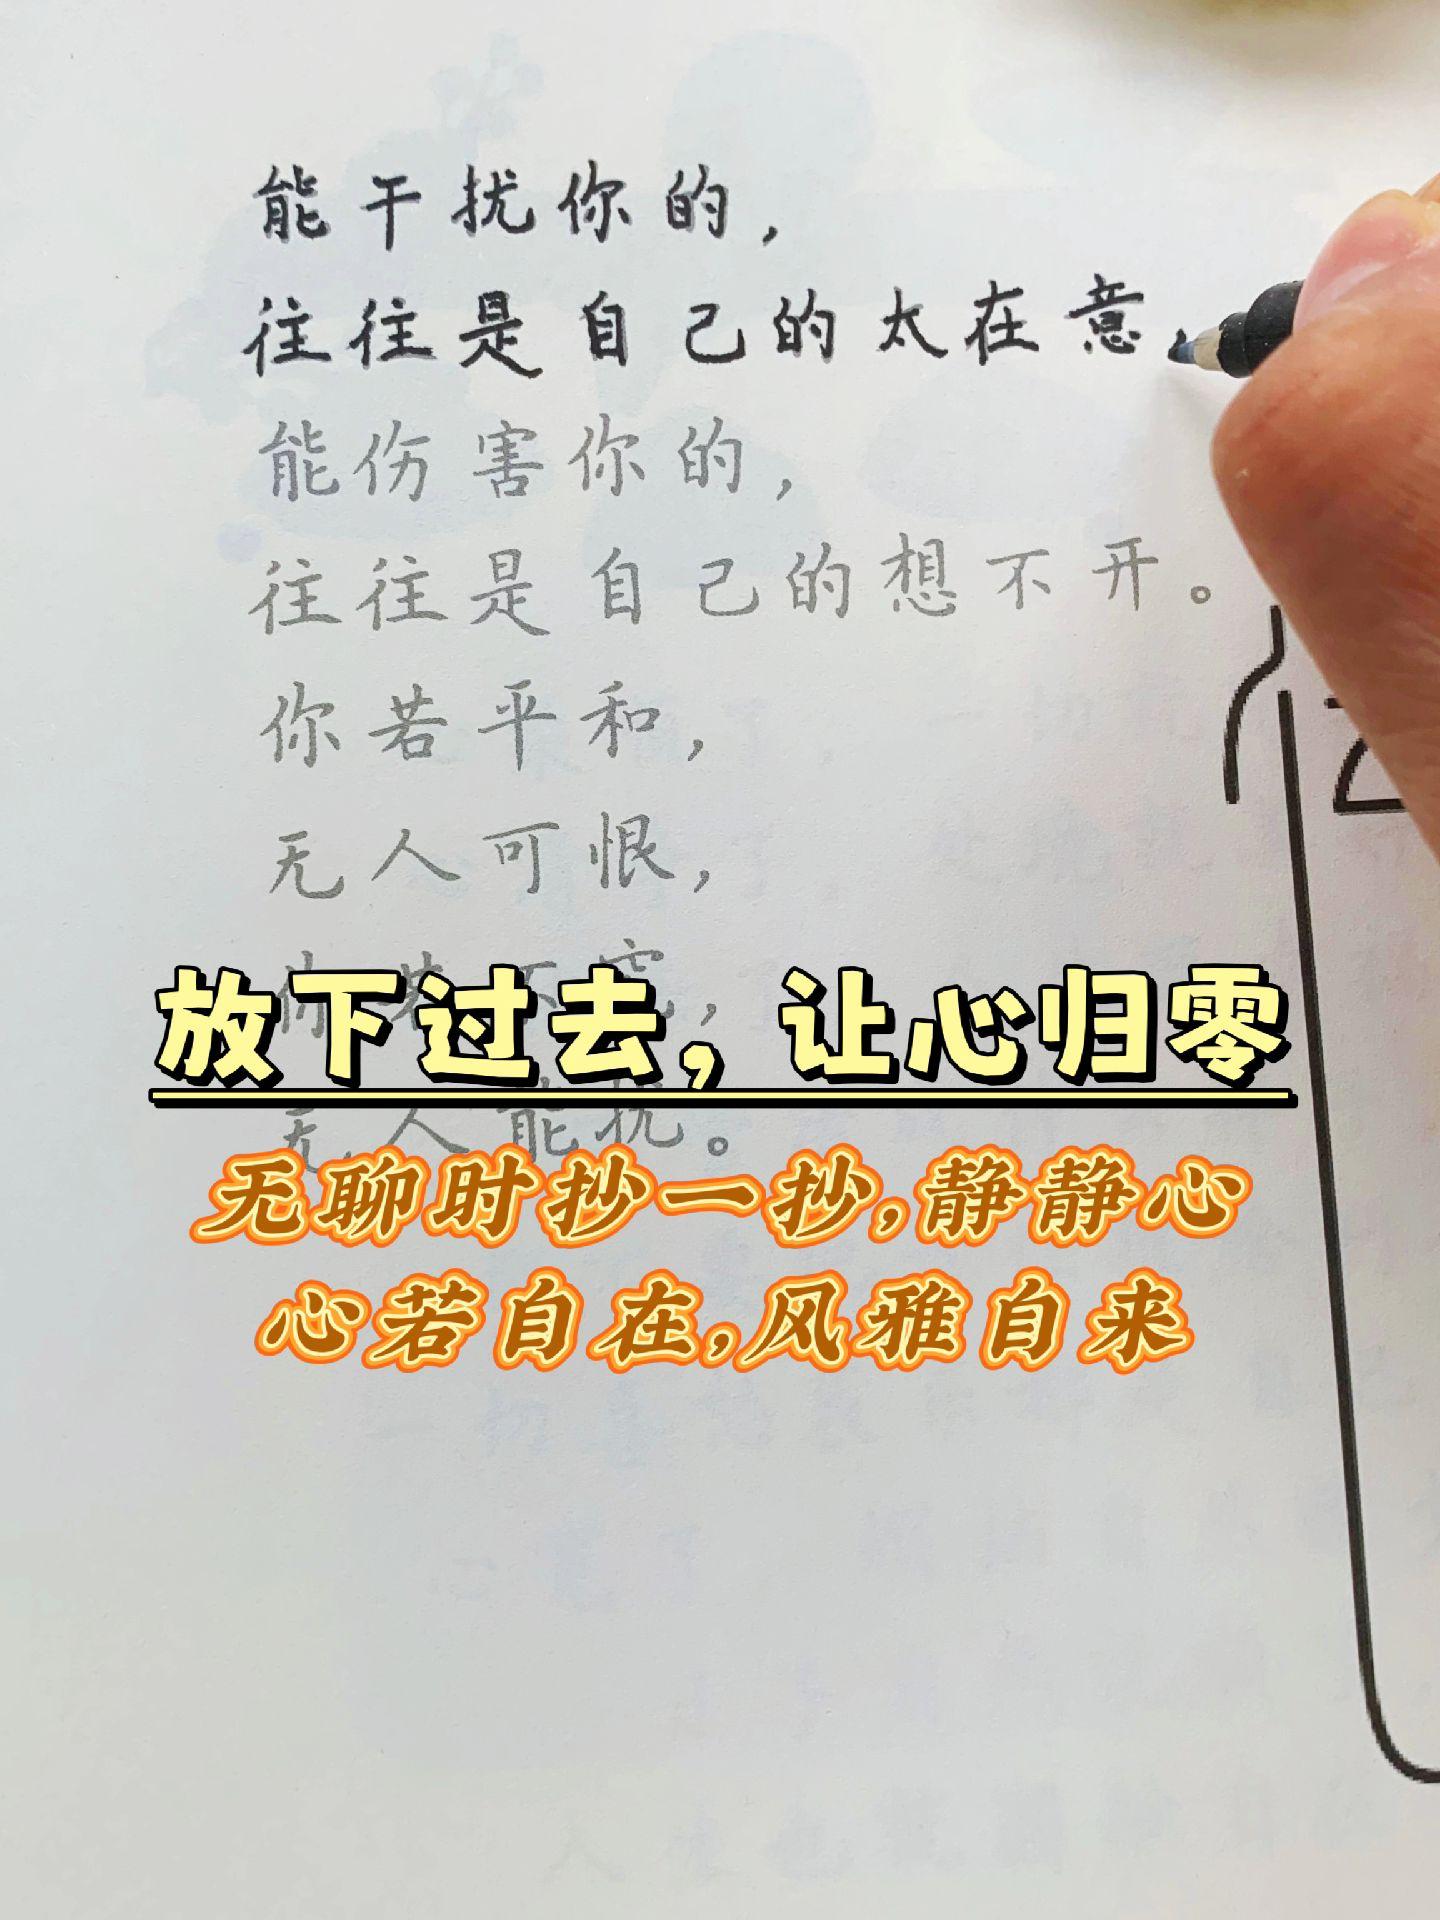 能干扰你的，
往往是自己的太在意，
能伤害你的，
往往是自己的想不开。
你若平和，
无人可恨，
放下过去，让心归零
无人能扰。
无聊时抄一抄,静静心
心若自在,风雅自来